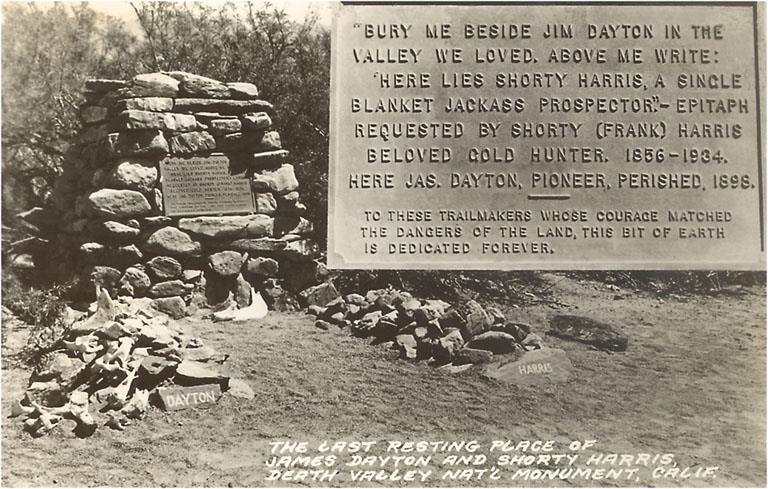 "BURY ME BESIDE JIM DAYTON IN THE
VALLEY WE LOVED. ABOVE ME WRITE:
'HERE LIES SHORTY HARRIS, A SINGLE
BLANKET JACKASS PROSPECTOR.'"-EPITAPH
REQUESTED BY SHORTY (FRANK) HARRIS
BELOVED GOLD HUNTER. 1856-1934.
HERE JAS. DAYTON, PIONEER, PERISHED, 1898.
TO THESE TRAILMAKERS WHOSE COURAGE MATCHED
THE DANGERS OF THE LAND, THIS BIT OF EARTH
IS DEDICATED FOREVER.
HARRIS
DAYTON
THE LAST RESTING PLACE OF
JAMES DAYTON AND SHORTY HARRIS,
DEATH VALLEY NAT'L MONUMENT, CALIF.